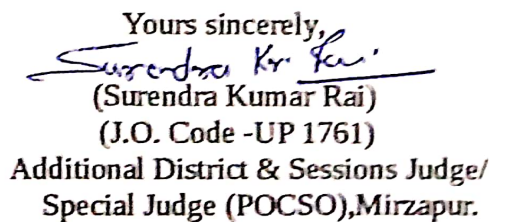 Yours sincerely,
Surendra Kr. Rai.
(Surendra Kumar Rai)
(J.O. Code -UP 1761)
Additional District & Sessions Judge/
Special Judge (POCSO),Mirzapur.